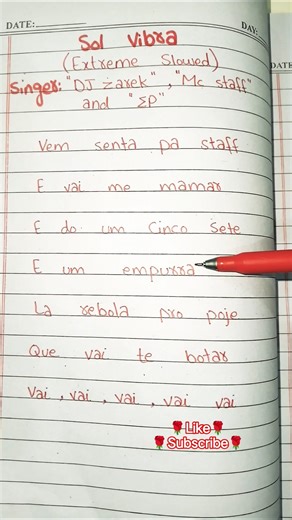 DATE:
DAY:
DATE
Sol Vibra
(Extreme Slowed)
Singer: "DJ żarek", "Mc staff"
and "ΣP"
Vem senta pa staff
E vai me mamar
E do um Cinco Sete
E um empurra
La rebola pro poje
Que vai te botar
Vai, vai, vai, vai vai
🌹Like🌹
🌹Subscribe🌹